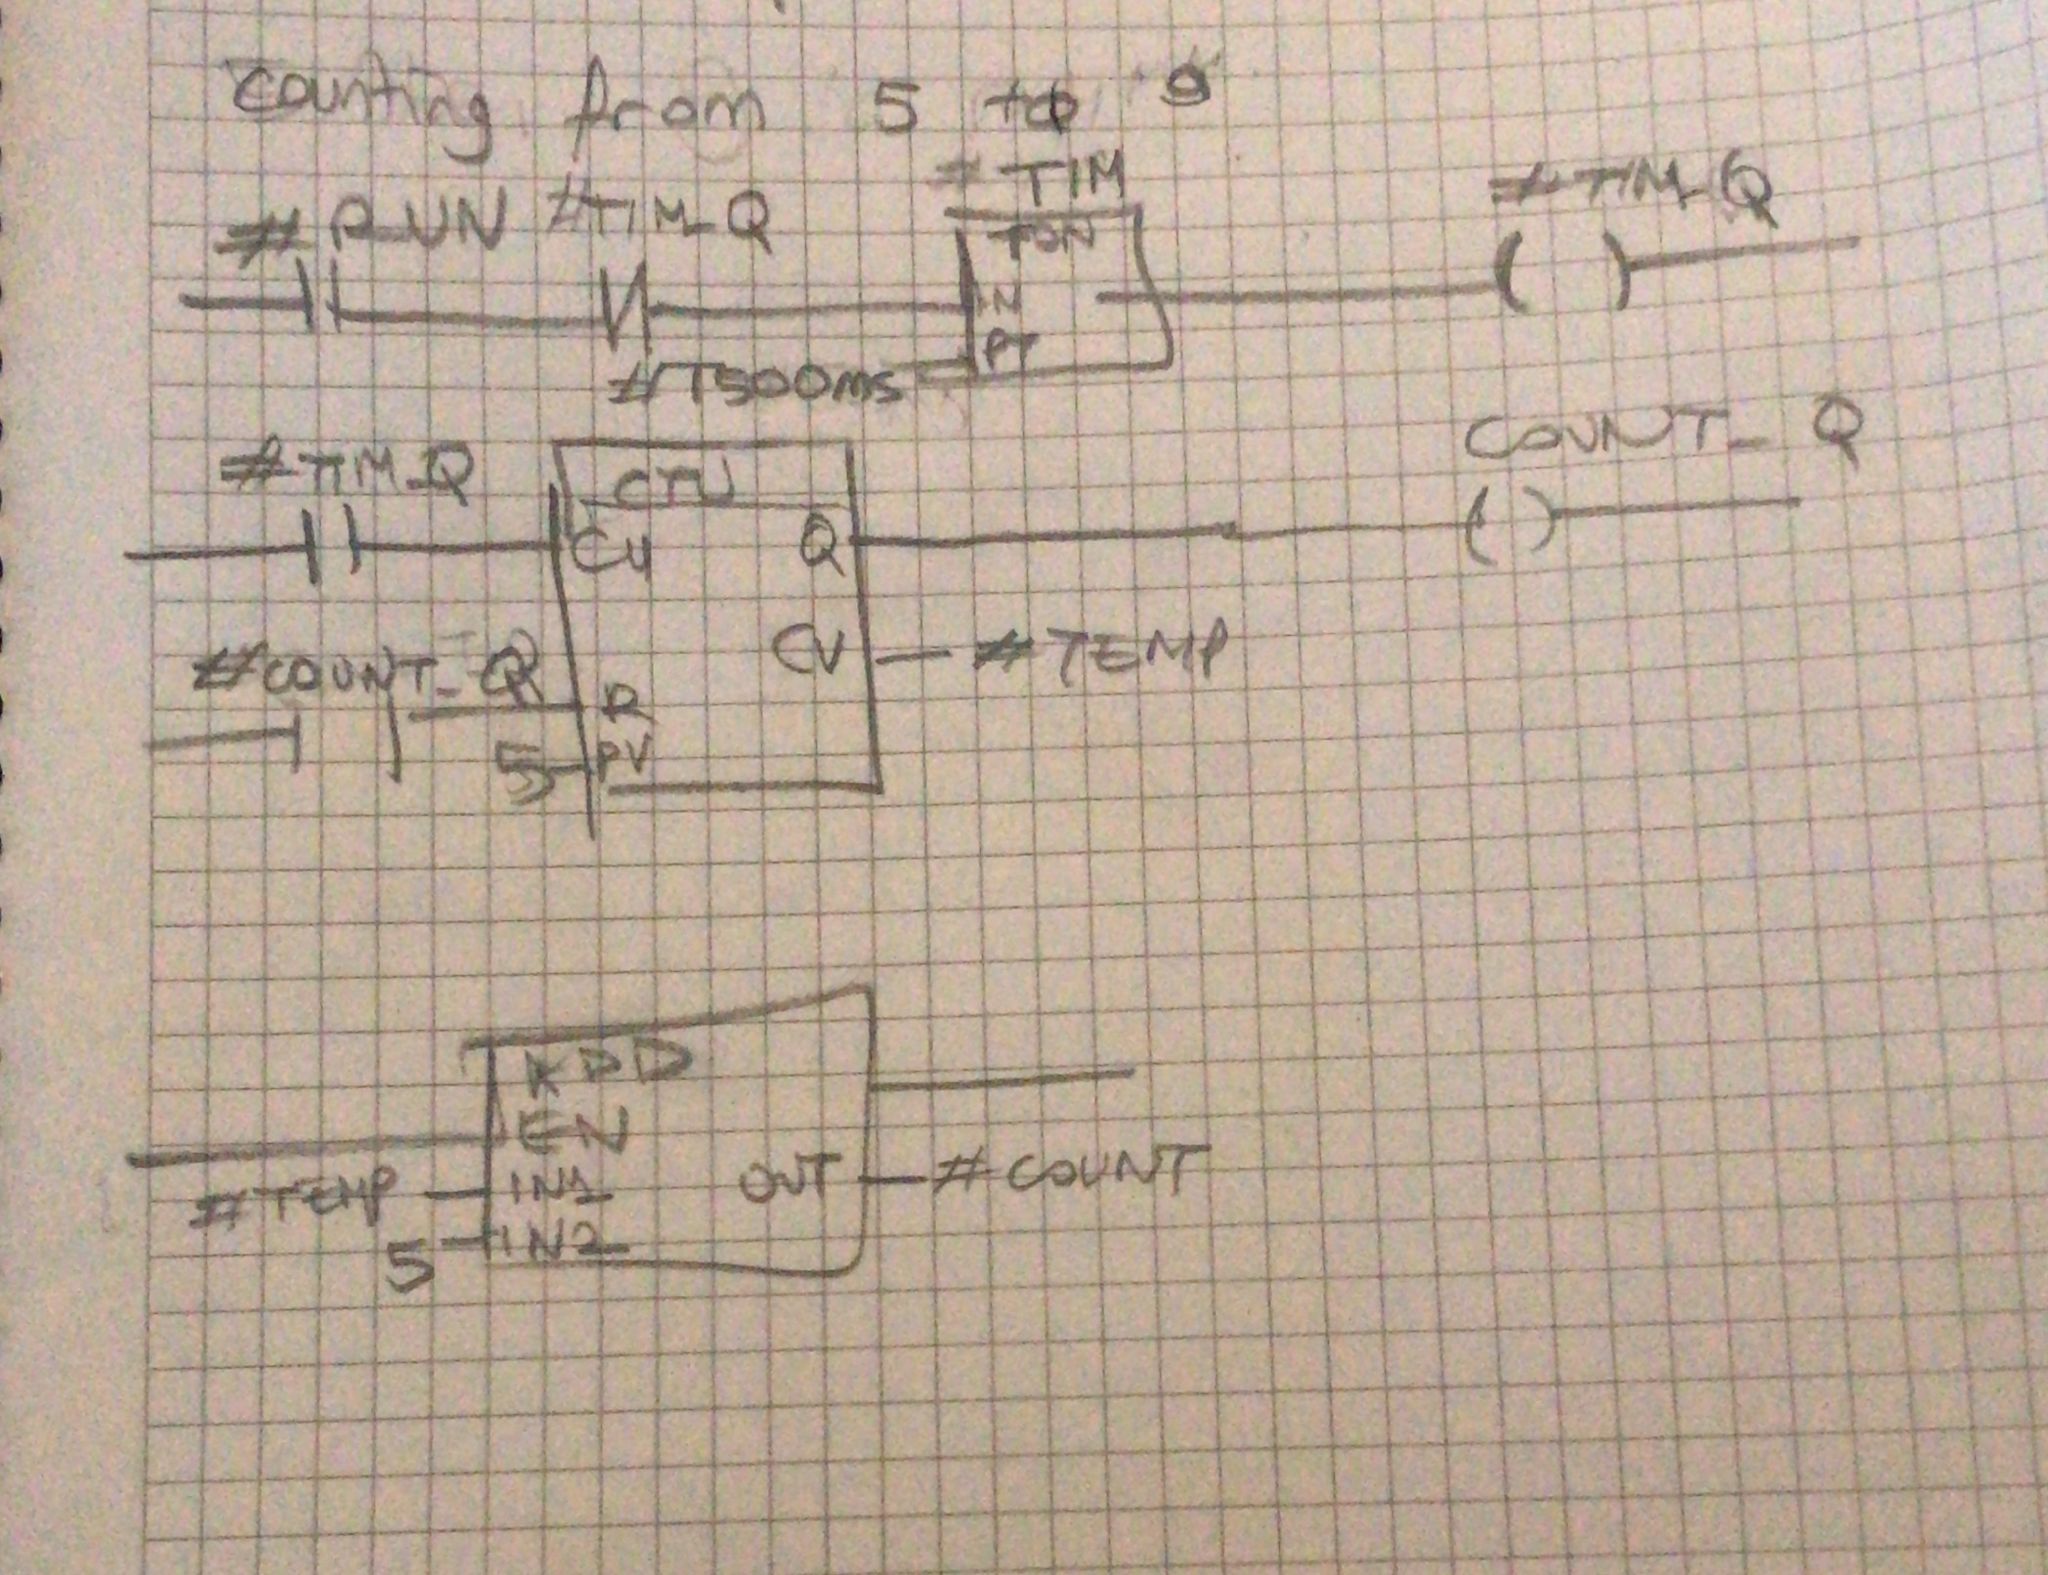 counting from 5 to 9
#RUN #TIM_Q #TIM #TIM_Q
TON
IN
PT
#T500ms
#TIM_Q COUNT_Q
CTU
CU Q
#COUNT_Q CV #TEMP
R
5 PV
ADD
EN
#TEMP IN1 OUT #COUNT
5 IN2